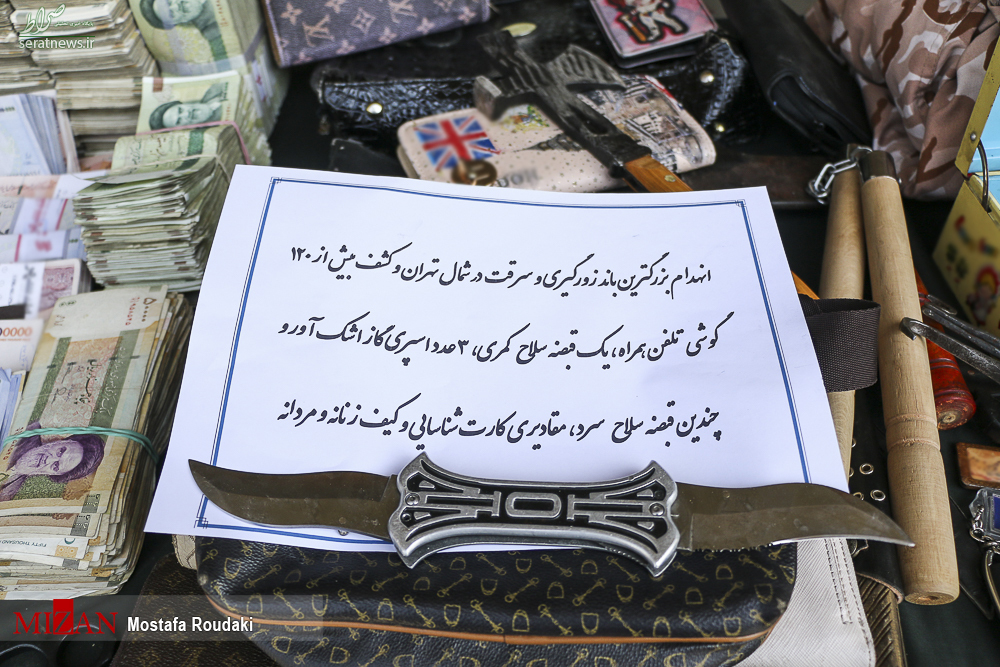 صراط
seratnews.ir
انهدام بزرگترین باند زورگیری و سرقت در شمال تهران و کشف بیش از ۱۲۰
گوشی تلفن همراه، یک قبضه سلاح کمری، ۳ عدد اسپری گاز اشک آور و
چندین قبضه سلاح سرد، مقادیری کارت شناسایی و کیف زنانه و مردانه
FIFTY THOUSAND
MIZAN Mostafa Roudaki